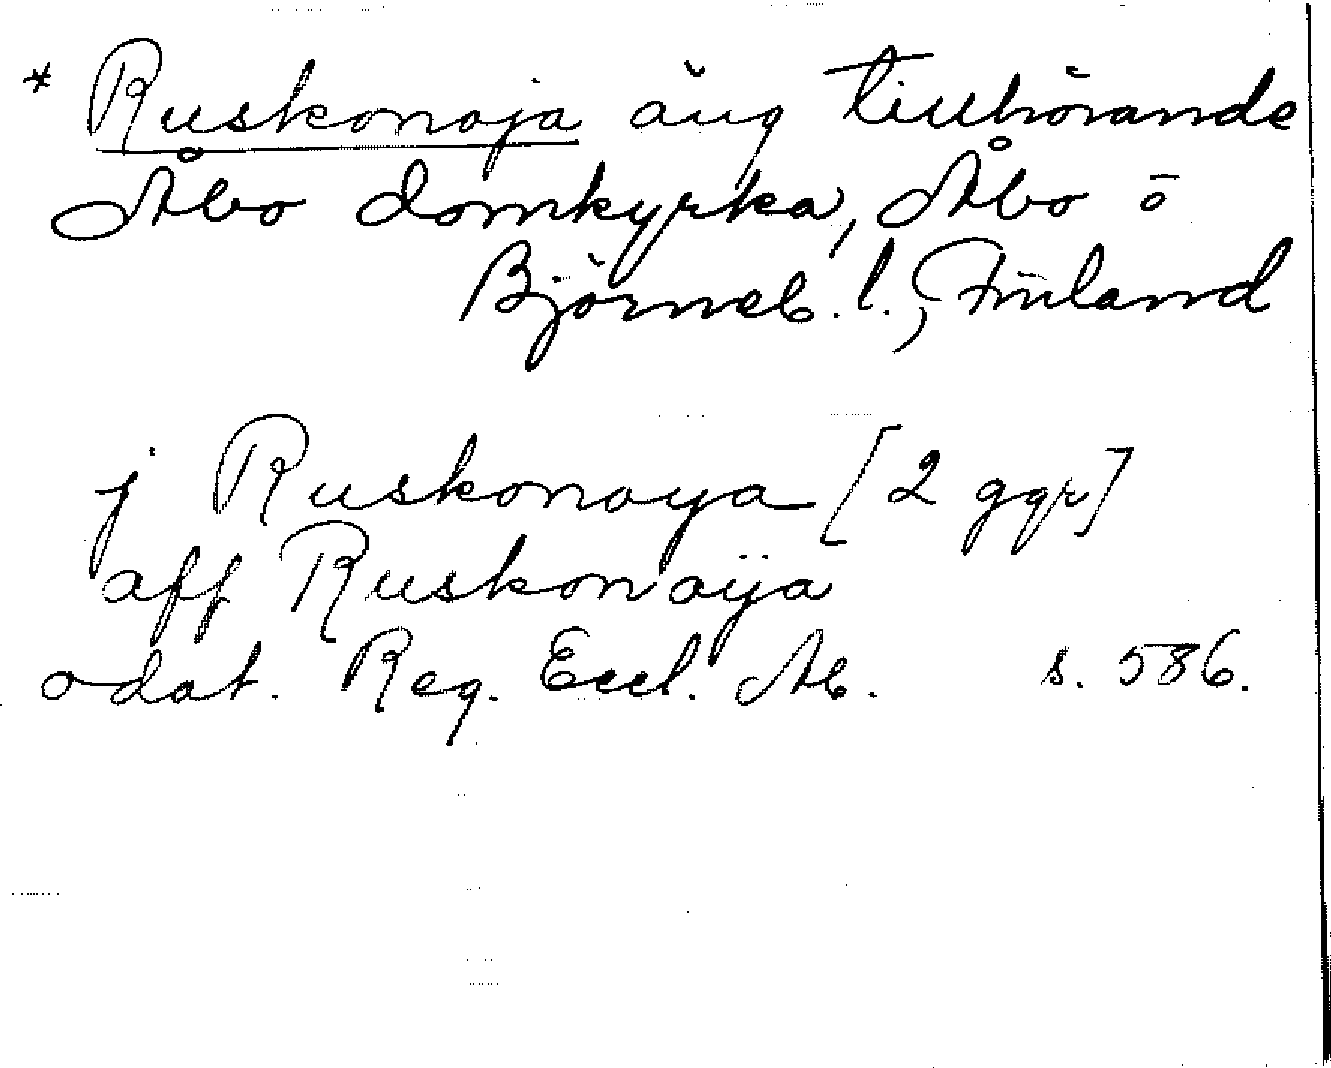 * Ruskonoja äng tillhörande
Åbo domkyrka, Åbo o
Björneb. l., Finland
j Ruskonoya [2 ggr]
aff Ruskonoÿa
odat. Reg. Eccl. Ab. s. 586.